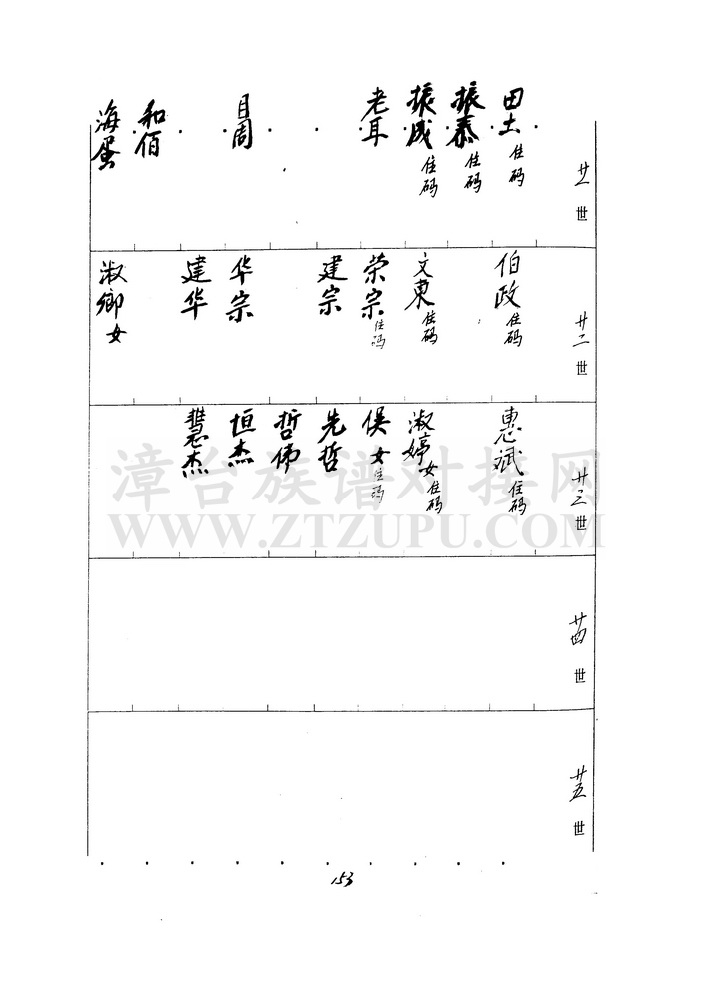 廿一世
田土住码
振泰住码
振成住码
老耳
目周
和佰
海蛋
廿二世
伯政住码
文東住码
荣宗住码
建宗
华宗
建华
淑卿女
廿三世
惠斌住码
淑婷女住码
俣女住码
先哲
哲伟
恒杰
慧杰
廿四世
廿五世
153
漳台族谱对接网
WWW.ZTZUPU.COM